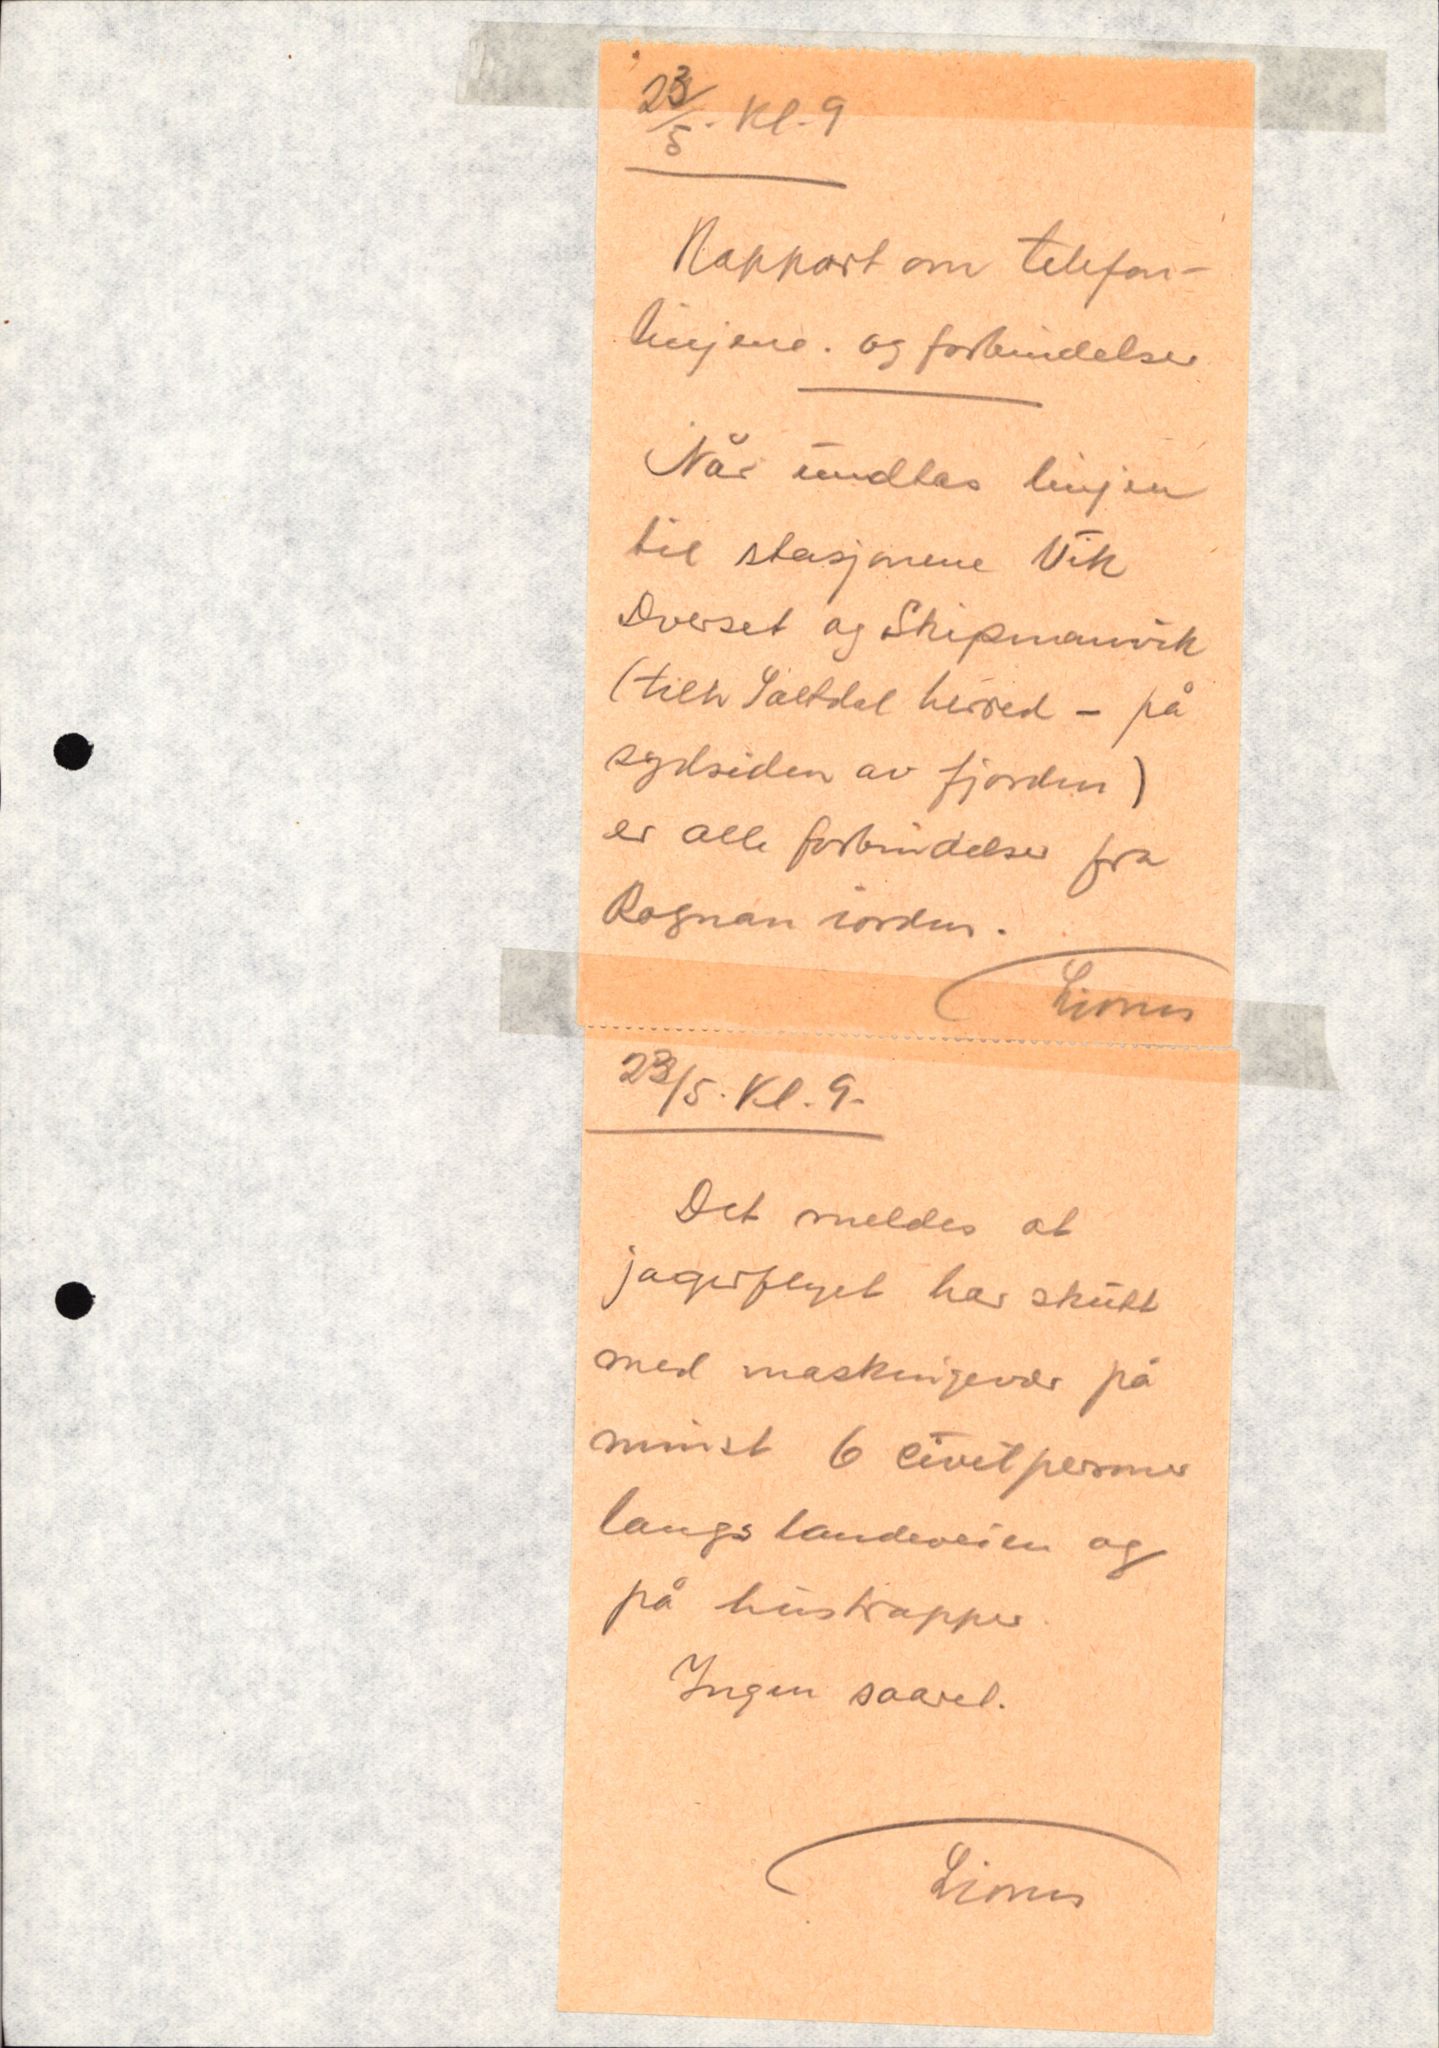 23/5. Kl. 9
Rapport om telefon-
linjene. og forbindelser
Når undtas linjen
til stasjonene Vik
Dverset og Skipmanvik
(tilh Saltdal herred - på
sydsiden av fjorden)
er alle forbindelser fra
Rognan iorden.
23/5. Kl. 9.
Det meldes at
jagerflyet har skutt
med maskingevær på
minst 6 civilpersoner
langs landeveien og
på hustrapper.
Ingen saaret.